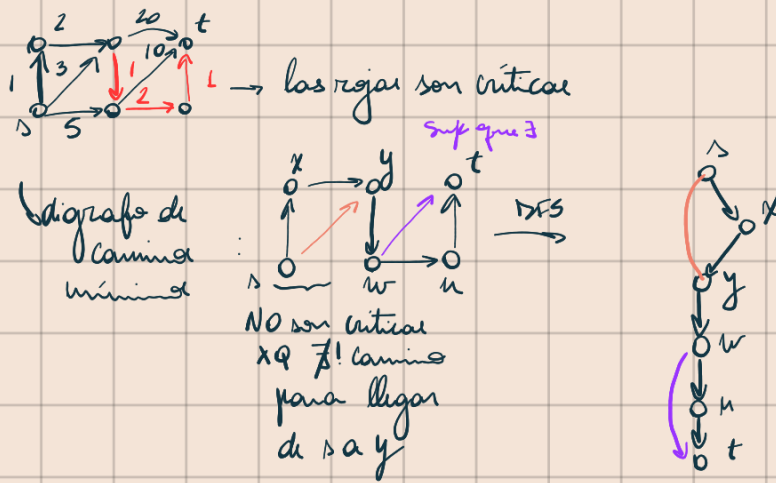 2 20 t
1 3 10 1 1
s 5 2
→ las rojas son críticas
sup que ∃
x y t
DFS
digrafo de
camino
mínimo
:
s w u
NO son críticas
xQ ∄! camino
para llegar
de s a y
s
x
y
w
u
t